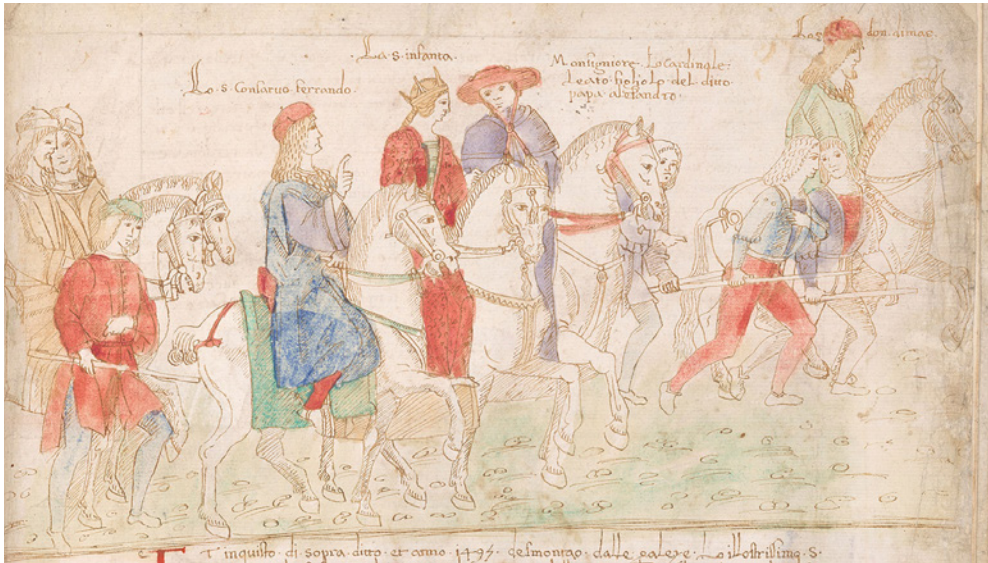 Lo s don dimas.
La . s . infanta .
Monsigniore . Lo Cardinale:
Leato figliolo del ditto
papa alesandro .
Lo . s . Consaruo ferrando .
inquisto . di sopra ditto . et anno . 1495 . desmontao . dalle galeze . Lo illostrissimo . s .